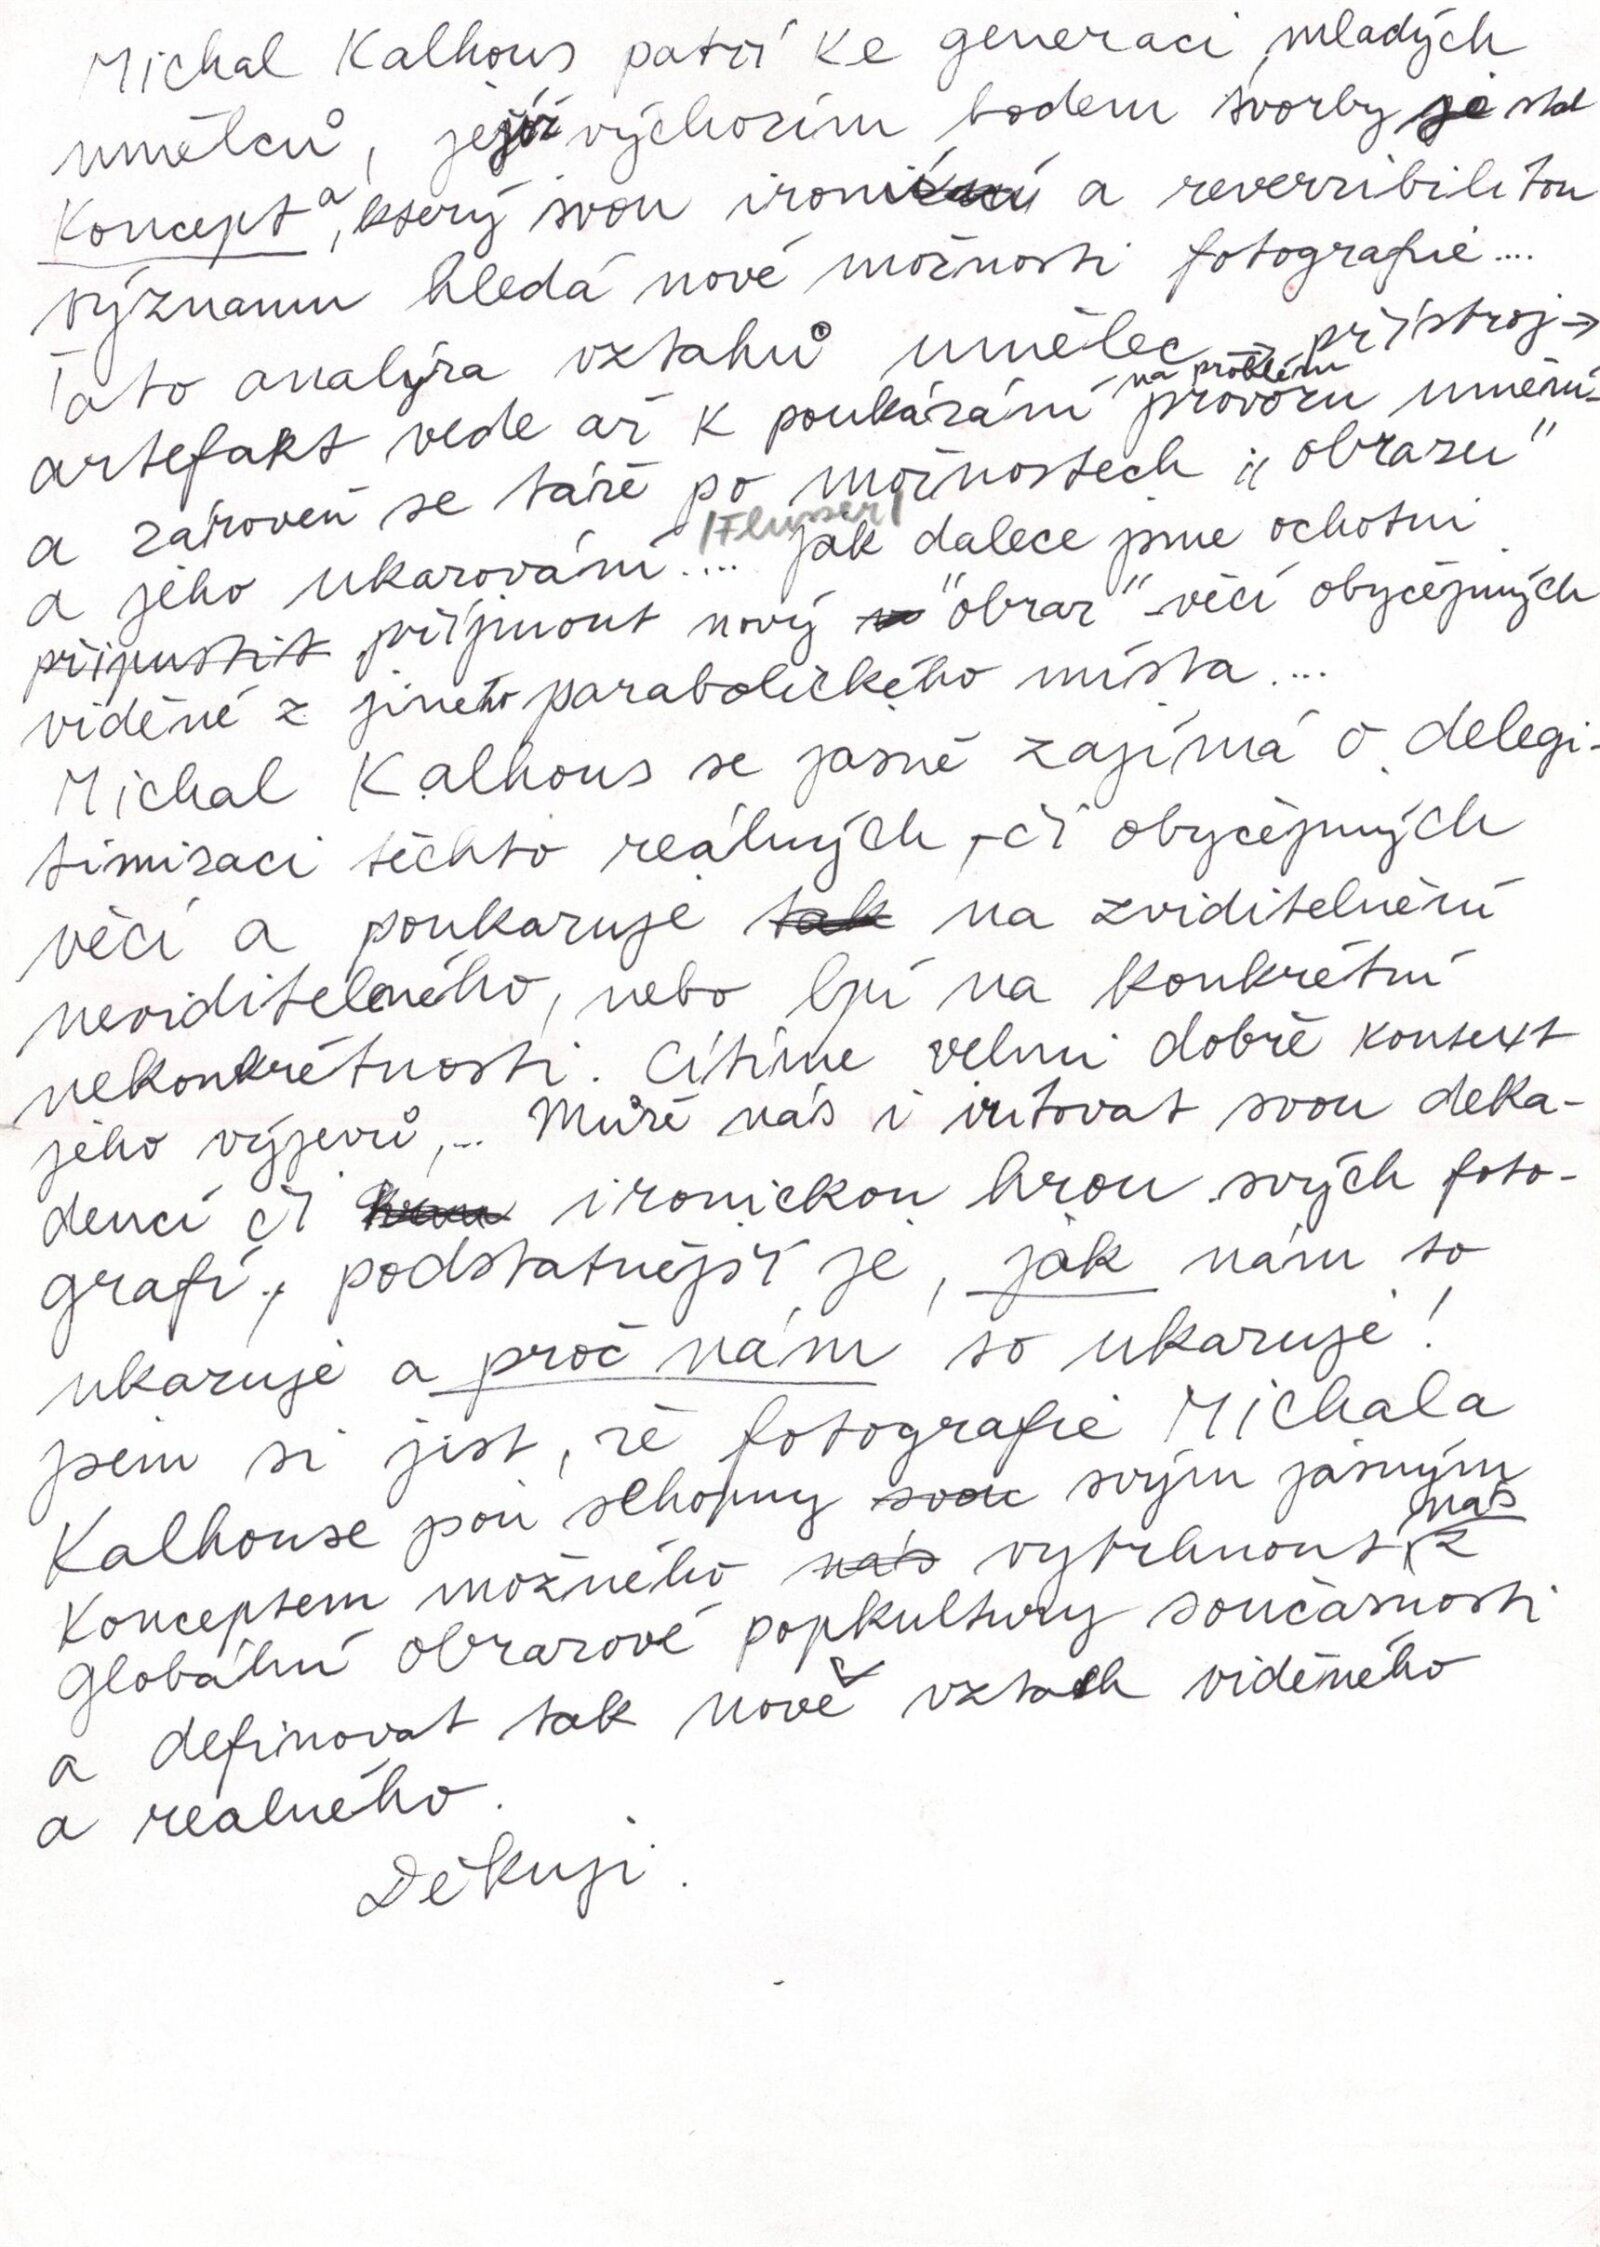 Michal Kalhous patří ke generaci mladých
umělců, jejíž výchozím bodem tvorby je
koncept a, který svou ironií a reverzibilitou
významu hledá nové možnosti fotografie....
Tato analýza vztahů umělec → přístroj →
artefakt vede až k poukázání na problém provozu umění
a zároveň se táže po možnostech „obrazu"
a jeho ukazování.... /Flusser/ jak dalece jsme ochotni
připustit přijmout nový "obraz" - věcí obyčejných
viděné z jiného parabolického místa....
Michal Kalhous se jasně zajímá o delegi-
timizaci těchto reálných, či obyčejných
věcí a poukazuje tak na zviditelnění
neviditelného, nebo lpí na konkrétní
nekonkrétnosti. Cítíme velmi dobře kontext
jeho výjevů,... Může nás i iritovat svou deka-
dencí či hrou ironickou hrou svých foto-
grafí, podstatnější je, jak nám to
ukazuje a proč nám to ukazuje!
jsem si jist, že fotografie Michala
Kalhouse jsou schopny svou svým jasným
konceptem možného nás vytrhnout nás z
globální obrazové popkultury současnosti
a definovat tak nově vztah viděného
a realného.
Děkuji.